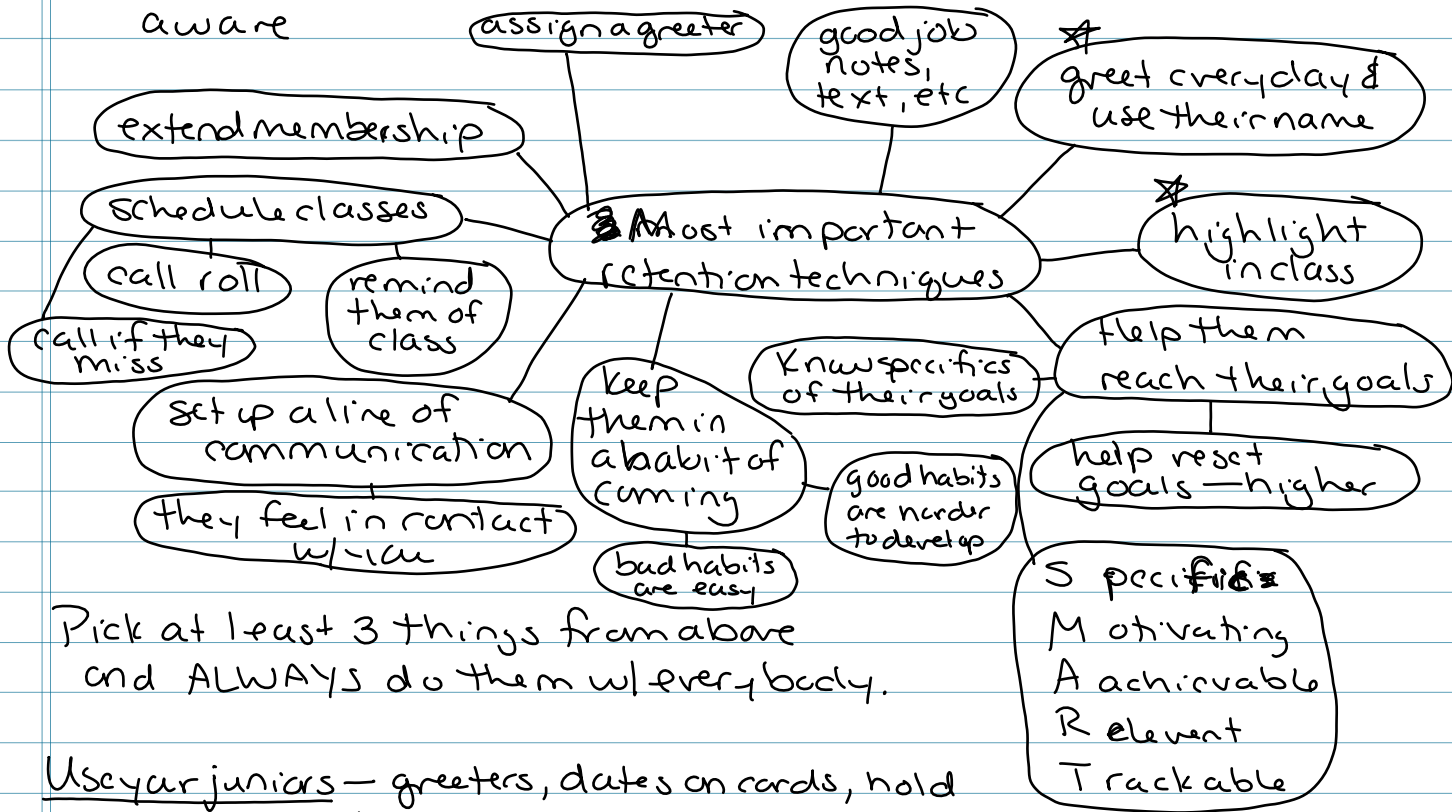 aware
assign a greeter
good job
notes,
text, etc
greet everyday &
use their name
extend membership
schedule classes
call roll
remind
them of
class
call if they
miss
Most important
retention techniques
highlight
in class
Help them
reach their goals
Know specifics
of their goals
help reset
goals — higher
set up a line of
communication
they feel in contact
w/
keep
them in
a haabit of
coming
good habits
are harder
to develop
bad habits
are easy
S pecific
M otivating
A achievable
R elevent
T rackable
Pick at least 3 things from above
and ALWAYS do them w/ everybody.
Use your juniors — greeters, dates on cards, hold